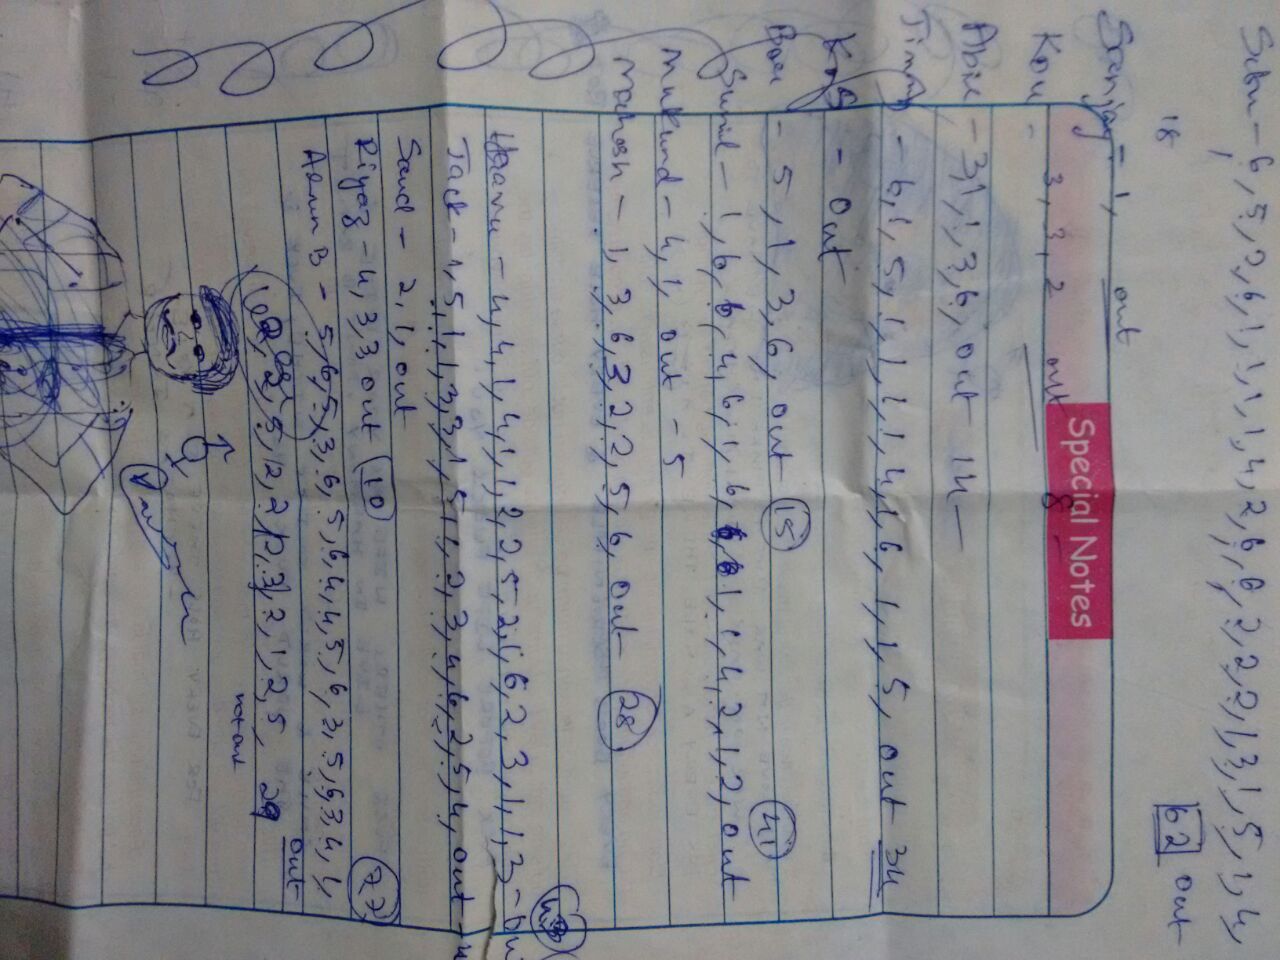 6, 5, 2, 6, 1, 1, 1, 1, 4, 2, 6, 6, 2, 2, 2, 1, 3, 1, 5, 1, 4,
62 out
18
Sanjay - 1, out
Special Notes
Kou - 3, 3, 2 out 8 -
Abie - 3, 1, 1, 3, 6, out 14 -
Jimmy - 6, 1, 5, 1, 1, 1, 1, 4, 1, 6, 1, 1, 5, out 34
- Out
- 5, 1, 3, 6, out 15
41
Sunil - 1, 6, 6, 4, 6, 1, 6, 1, 1, 4, 2, 1, 2, out
Mukund - 4, 1, out - 5
Mahesh - 1, 3, 6, 3, 2, 2, 5, 6, out 28
43
- 4, 4, 1, 4, 1, 1, 2, 2, 5, 2, 1, 6, 2, 3, 1, 1, 3 -
Jack - 1, 5, 1, 1, 3, 3, 1, 5, 1, 2, 3, 4, 6, 2, 5, 4, out -
Saud - 2, 1, out
Riyaz - 4, 3, 3, out 10
77
Arun B - 5, 6, 5, 3, 6, 5, 6, 4, 4, 5, 6, 3, 5, 6, 3, 4, 1,
out
2, 2, 5, 2, 2, 2, 3, 2, 1, 2, 5, 29
not out